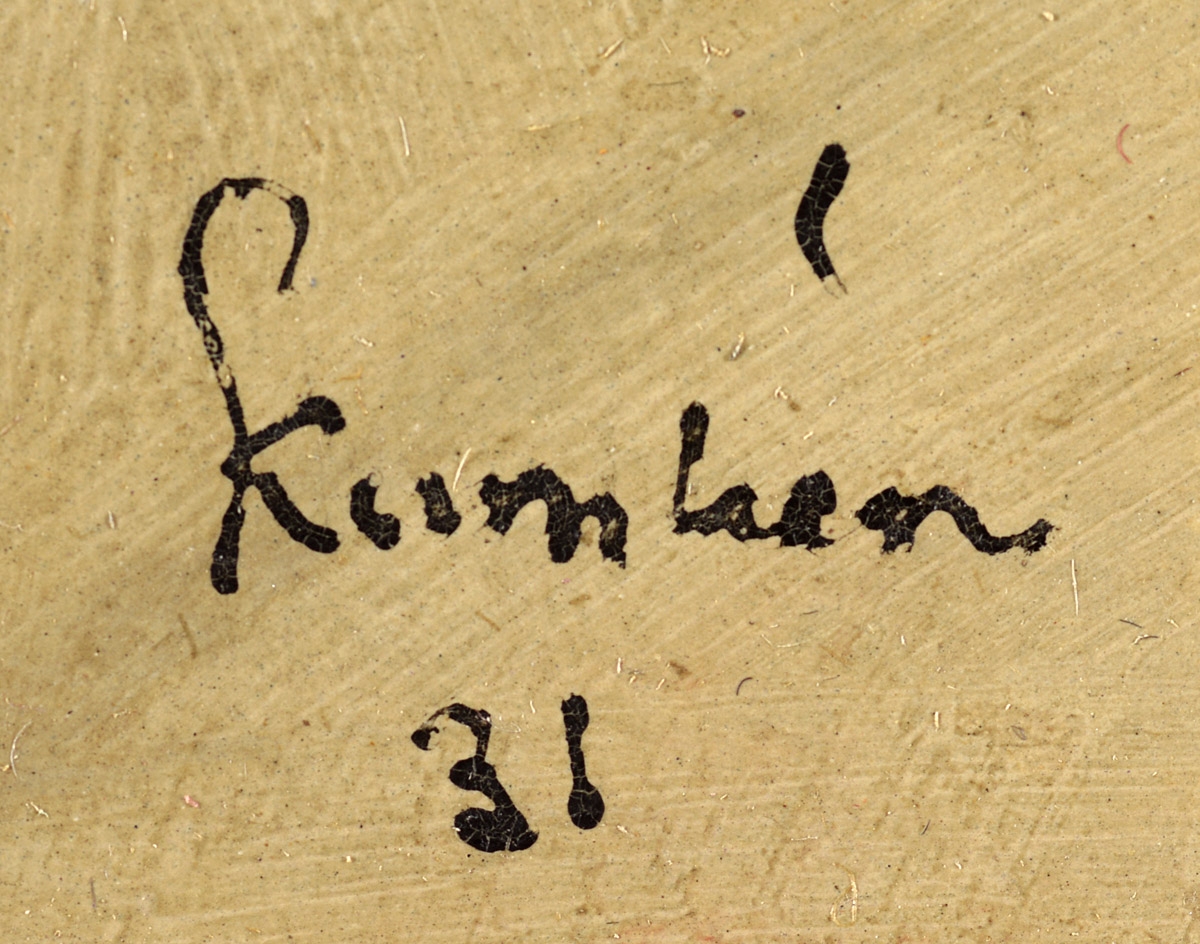 Kumlien
31